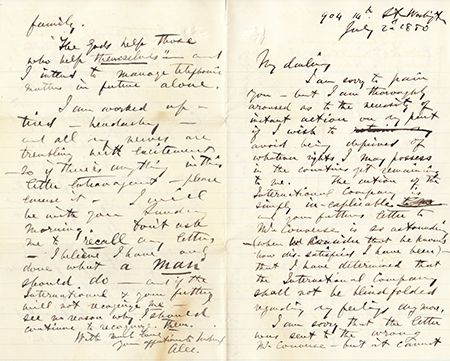 904 14th St. Washgt
July 2nd 1880
My darling
I am sorry to pain
you — but I am thoroughly
aroused as to the necessity of
instant action on my part
if I wish to
avoid being deprived of
whatever rights I may possess
in the countries yet remaining
to me. The action of the
International Company is
simply inexplicable to me
and your father's letter to
Mr Converse is so astounding
— when we consider that he knows
how dissatisfied I have been)
that I have determined that
the International Company
shall not be blindfolded
regarding my feelings any more.
I am sorry that the letter
was sent to the wrong
Mr Converse — but it cannot
family.
"The Gods help those
who help themselves" — and
I intend to manage telephonic
matters in future alone.
I am worked up —
tired headachy —
and all my nerves are
trembling with excitement
— so if there is anything in this
letter extravagant — please
excuse it — I will
be with you Sunday
morning. Don't ask
me to recall any letters
— I believe I have only
done what a man
should do — and if the
International & your father
will not recognize me I
see no reason why I should
continue to recognize them.
With much love
Your affectionate husband
Alec.